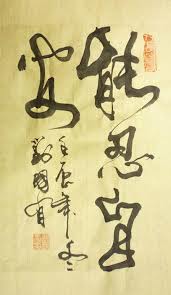 能忍自
安
壬辰年冬